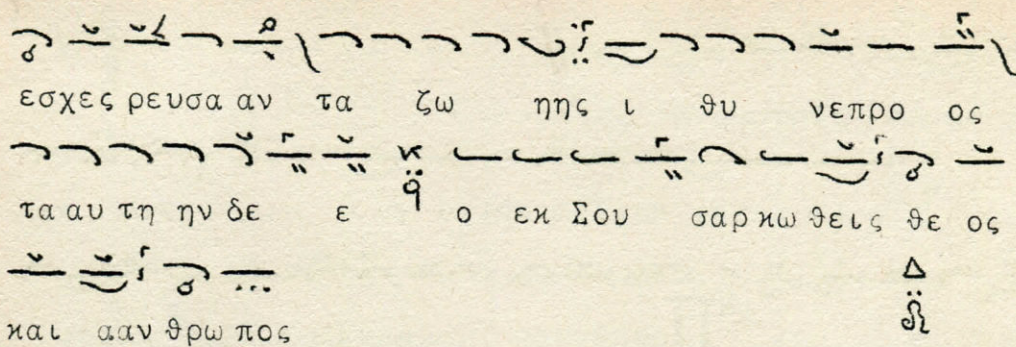 εσχες ρευσα αν τα ζω ηης ι θυ νεπρο ος
τα αυ τη ην δε ε ο εκ Σου σαρ κω θεις θε ος
και ααν θρω πος